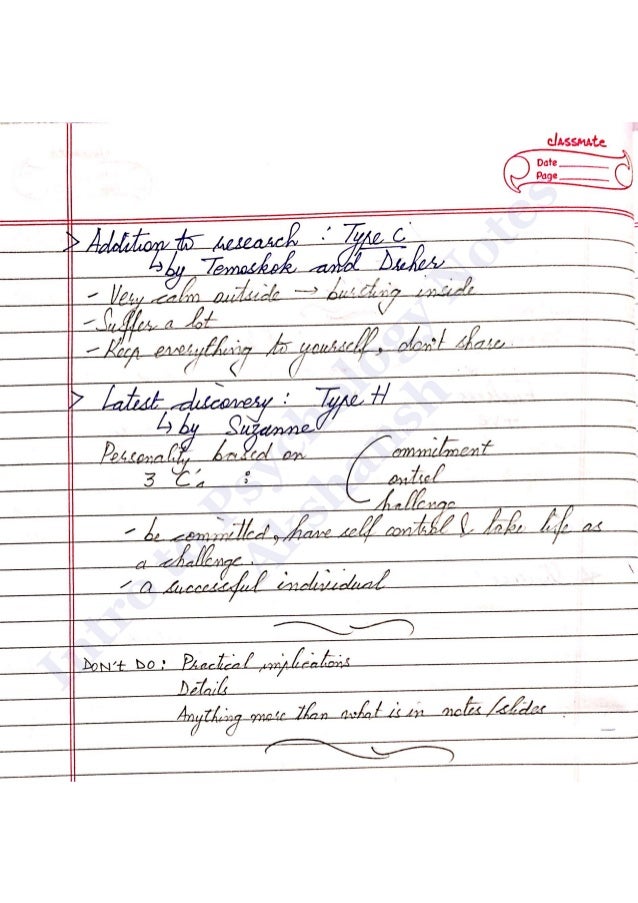 classmate
Date
Page
> Addition to research : Type C
↳ by Temoskok and Dreher
- Very calm outside → bursting inside
- Suffer a lot
- Keep everything to yourself, don't share
> Latest discovery : Type H
↳ by Suzanne
Personality based on Commitment
3 C's : ontrol
hallenge
- be committed, have self control & take life as
a challenge.
- a successful individual
DON'T DO : Practical implications
Details
Anything more than what is in notes/slides
Intro to Psychology Notes
Akshansh